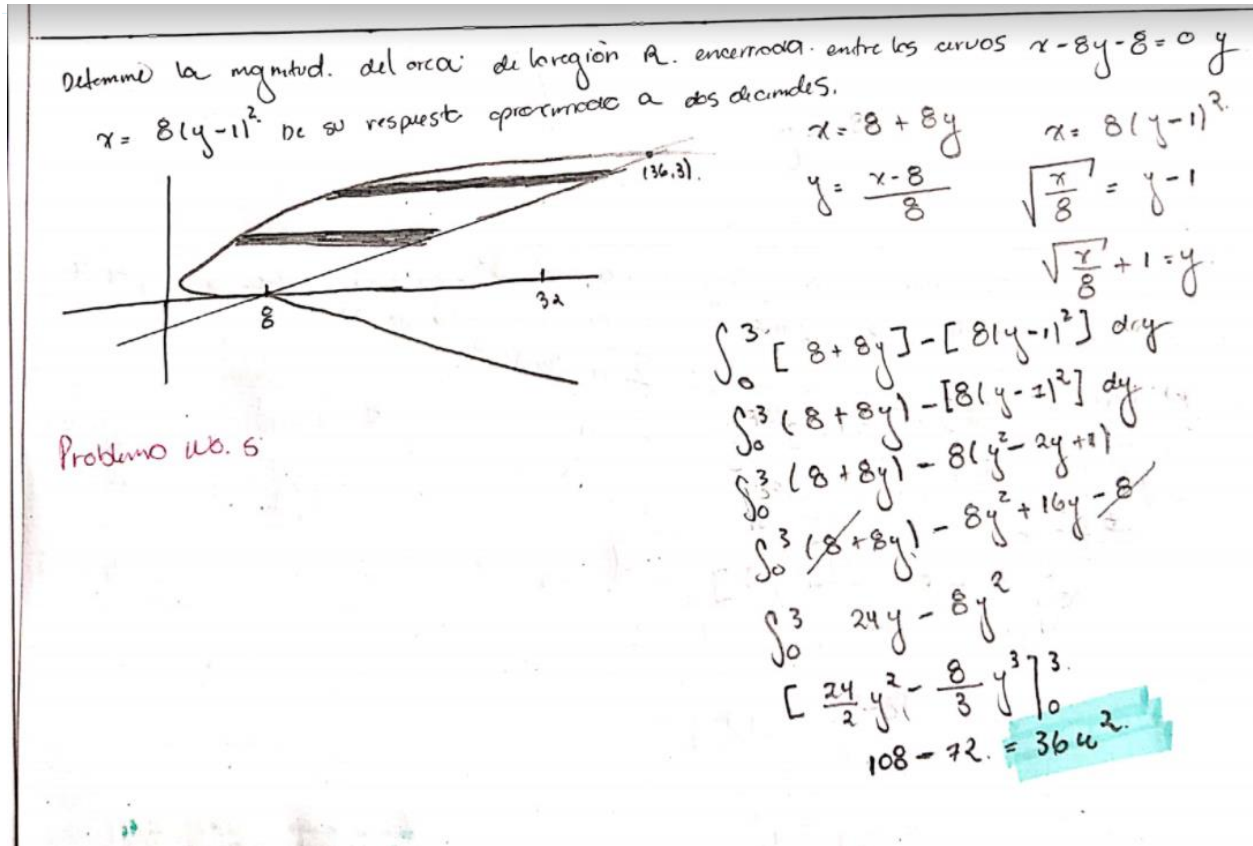 Determine la magnitud. del area de la región R. encerrada. entre las curvas x - 8y - 8 = 0 y
x = 8(y-1)². De su respuesta aproximada a dos decimales.
x = 8 + 8y
x = 8(y-1)².
y = (x-8)/8
√(x/8) = y - 1
√(x/8) + 1 = y
(36,3).
8
32
Problema No. 5
∫₀³ [8+8y] - [8(y-1)²] dy
∫₀³ (8+8y) - [8(y-1)²] dy
∫₀³ (8+8y) - 8(y² - 2y + 1)
∫₀³ (8+8y) - 8y² + 16y - 8
∫₀³ 24y - 8y²
[24/2 y² - 8/3 y³]₀³.
108 - 72. = 36 u².